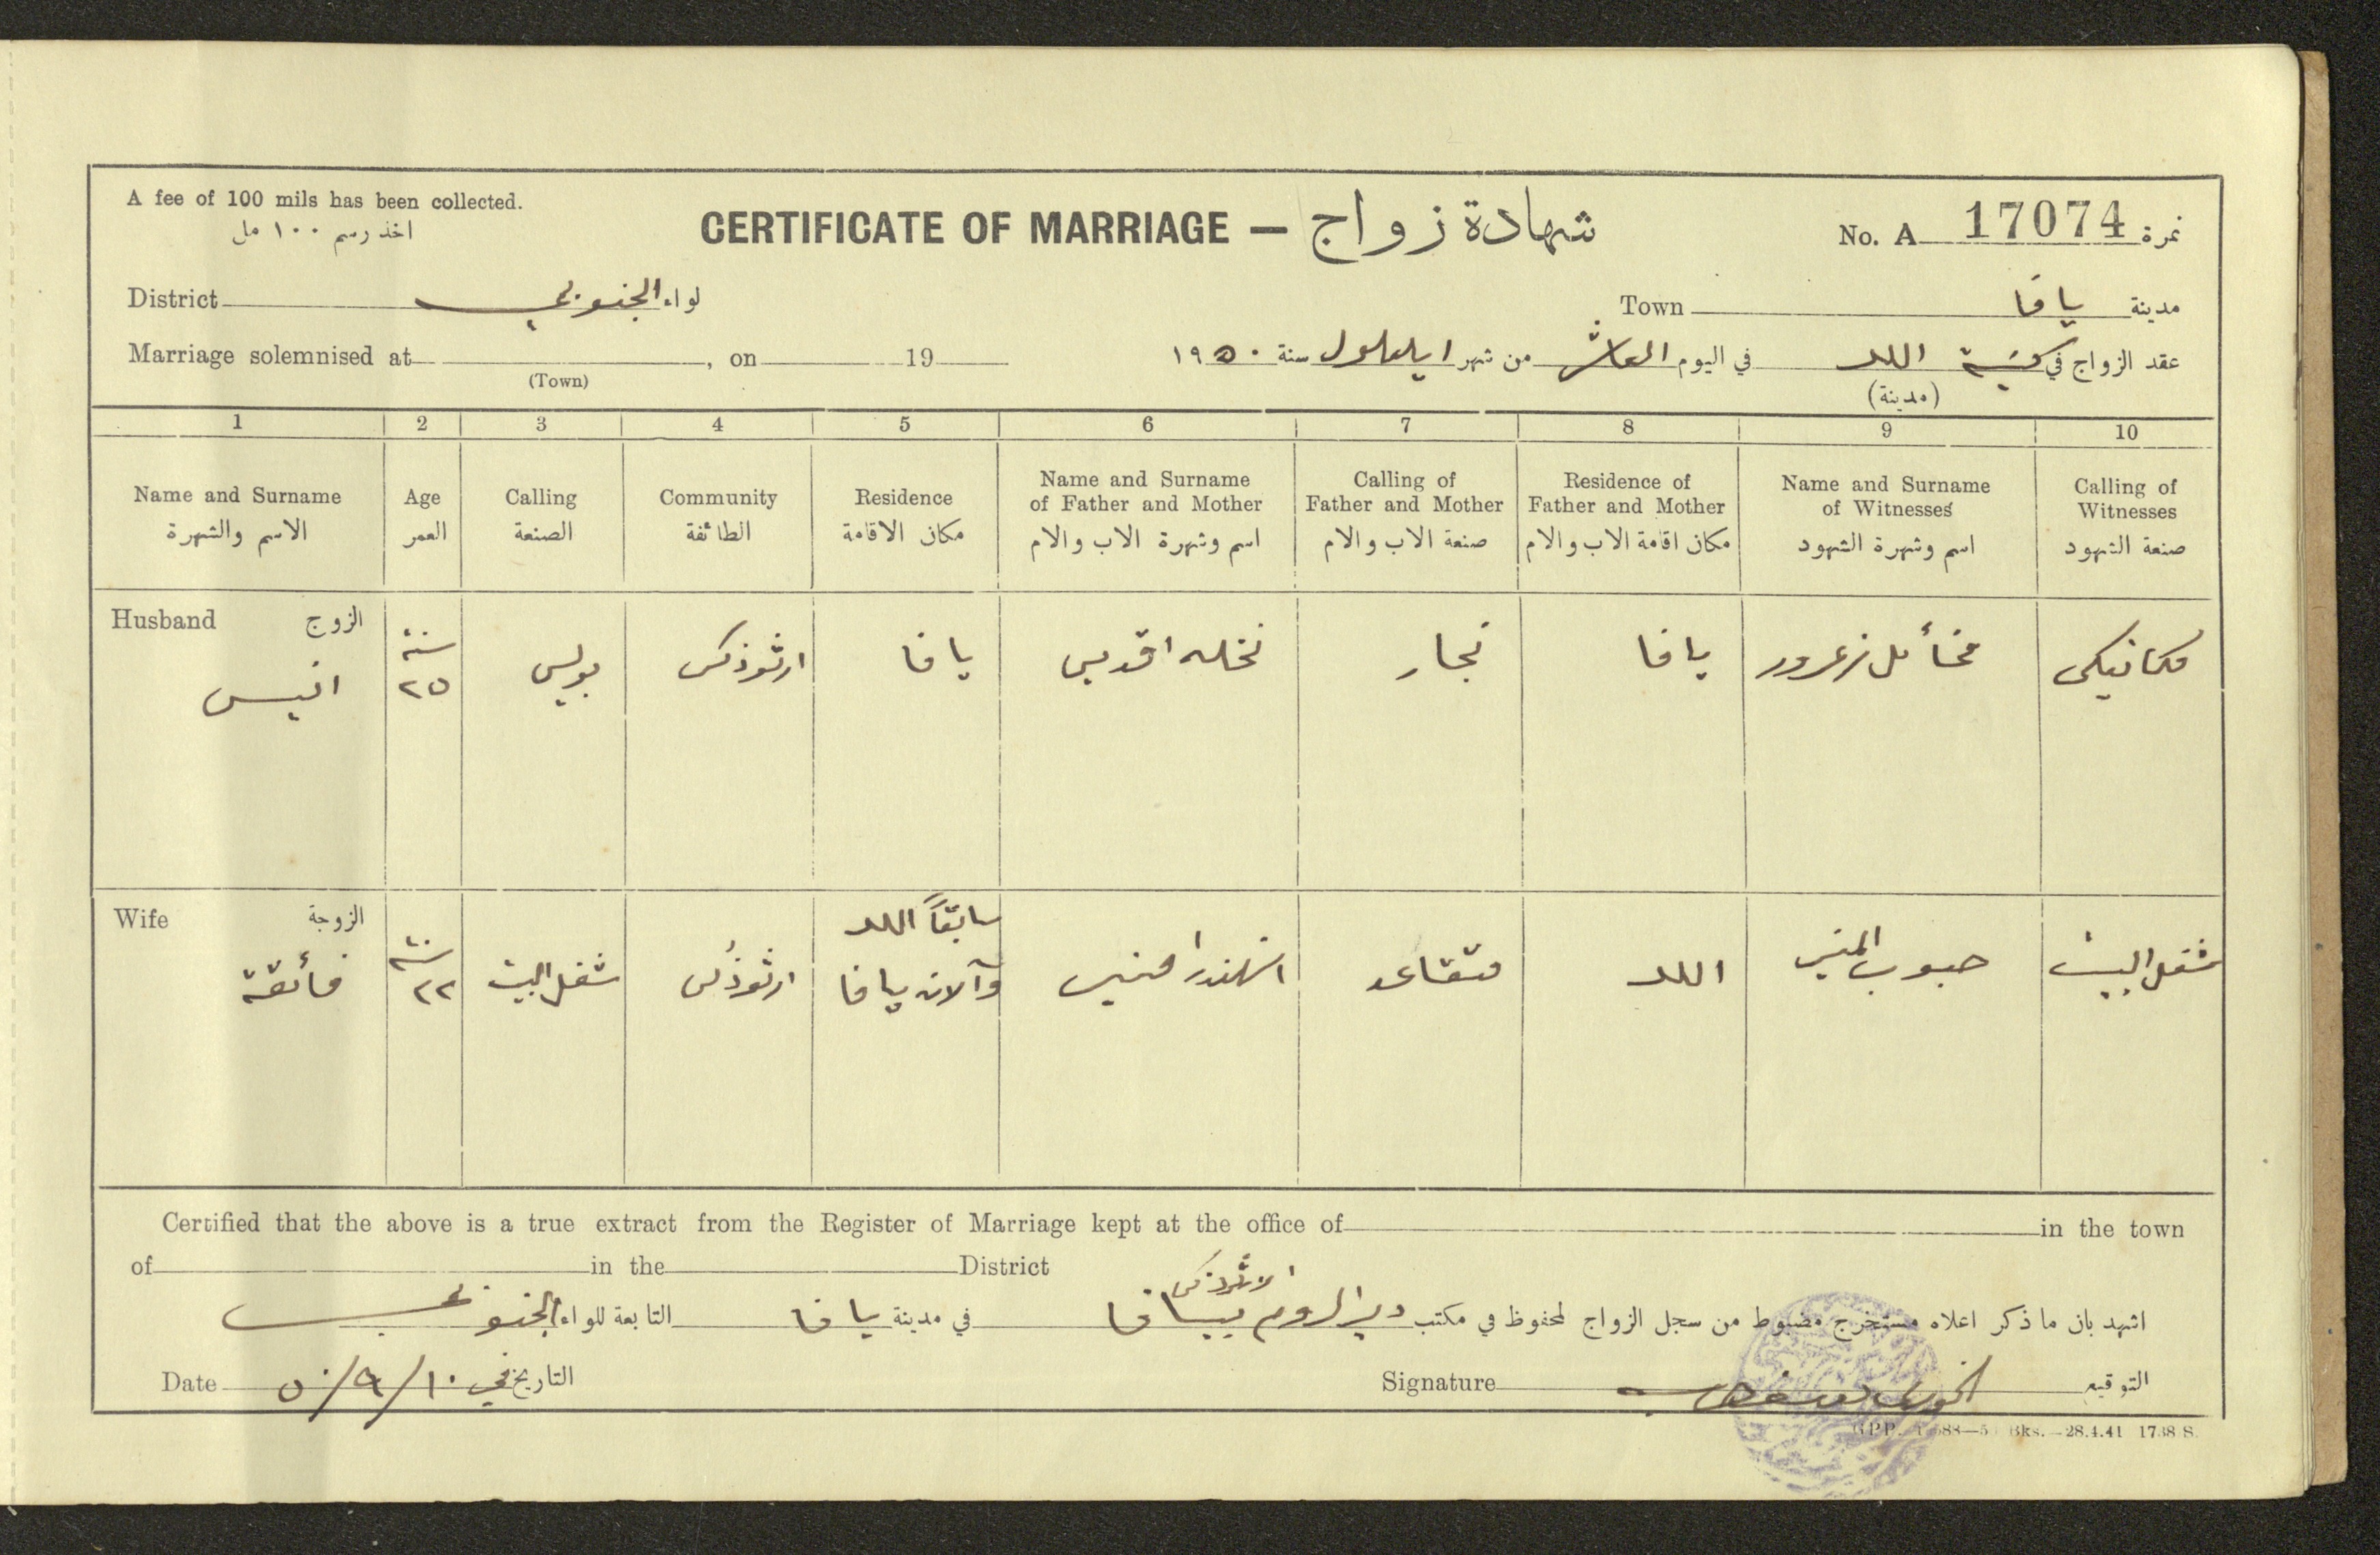 A fee of 100 mils has been collected.
اخذ رسم ١٠٠ مل
CERTIFICATE OF MARRIAGE — شهادة زواج
No. A 17074 نمرة
District الجنوبي لواء
Town يافا مدينة
Marriage solemnised at , on 19
(Town)
عقد الزواج في كنيسة اللد في اليوم العاشر من شهر ايلول سنة ١٩٥٠
(مدينة)
1 2 3 4 5 6 7 8 9 10
Name and Surname
الاسم والشهرة
Age
العمر
Calling
الصنعة
Community
الطائفة
Residence
مكان الاقامة
Name and Surname
of Father and Mother
اسم وشهرة الاب والام
Calling of
Father and Mother
صنعة الاب والام
Residence of
Father and Mother
مكان اقامة الاب والام
Name and Surname
of Witnesses
اسم وشهرة الشهود
Calling of
Witnesses
صنعة الشهود
Husband الزوج
انيس
سنة
٢٥
بوليس
ارثوذكس
يافا
نخله اقديس
نجار
يافا
مخائل زعرور
مكانيكي
Wife الزوجة
فائقة
سنة
٢٢
شغل البيت
ارثوذكس
سابقاً اللد
وآلان يافا
متقاعد
اللد
حبوب المنير
شغل البيت
Certified that the above is a true extract from the Register of Marriage kept at the office of in the town
of in the District
اشهد بان ما ذكر اعلاه مستخرج مضبوط من سجل الزواج المحفوظ في مكتب دير الروم الارثوذكس بيافا في مدينة يافا التابعة للواء الجنوبي
Date ١٠/٩/٥٠ التاريخ في
Signature الخوري التوقيع
28.4.41